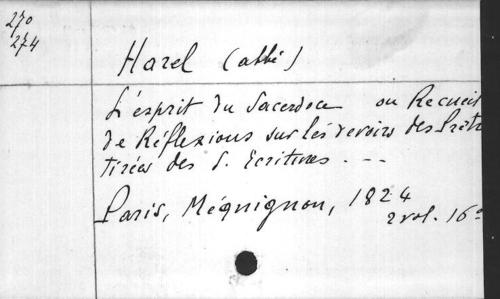 270
274
Harel (abbé)
L'esprit du Sacerdoce ou Recueil
de Réflexions sur les devoirs des Prêt
tirées des S. Ecritures . - -
Paris, Méquignon, 1824
2 vol. 16°